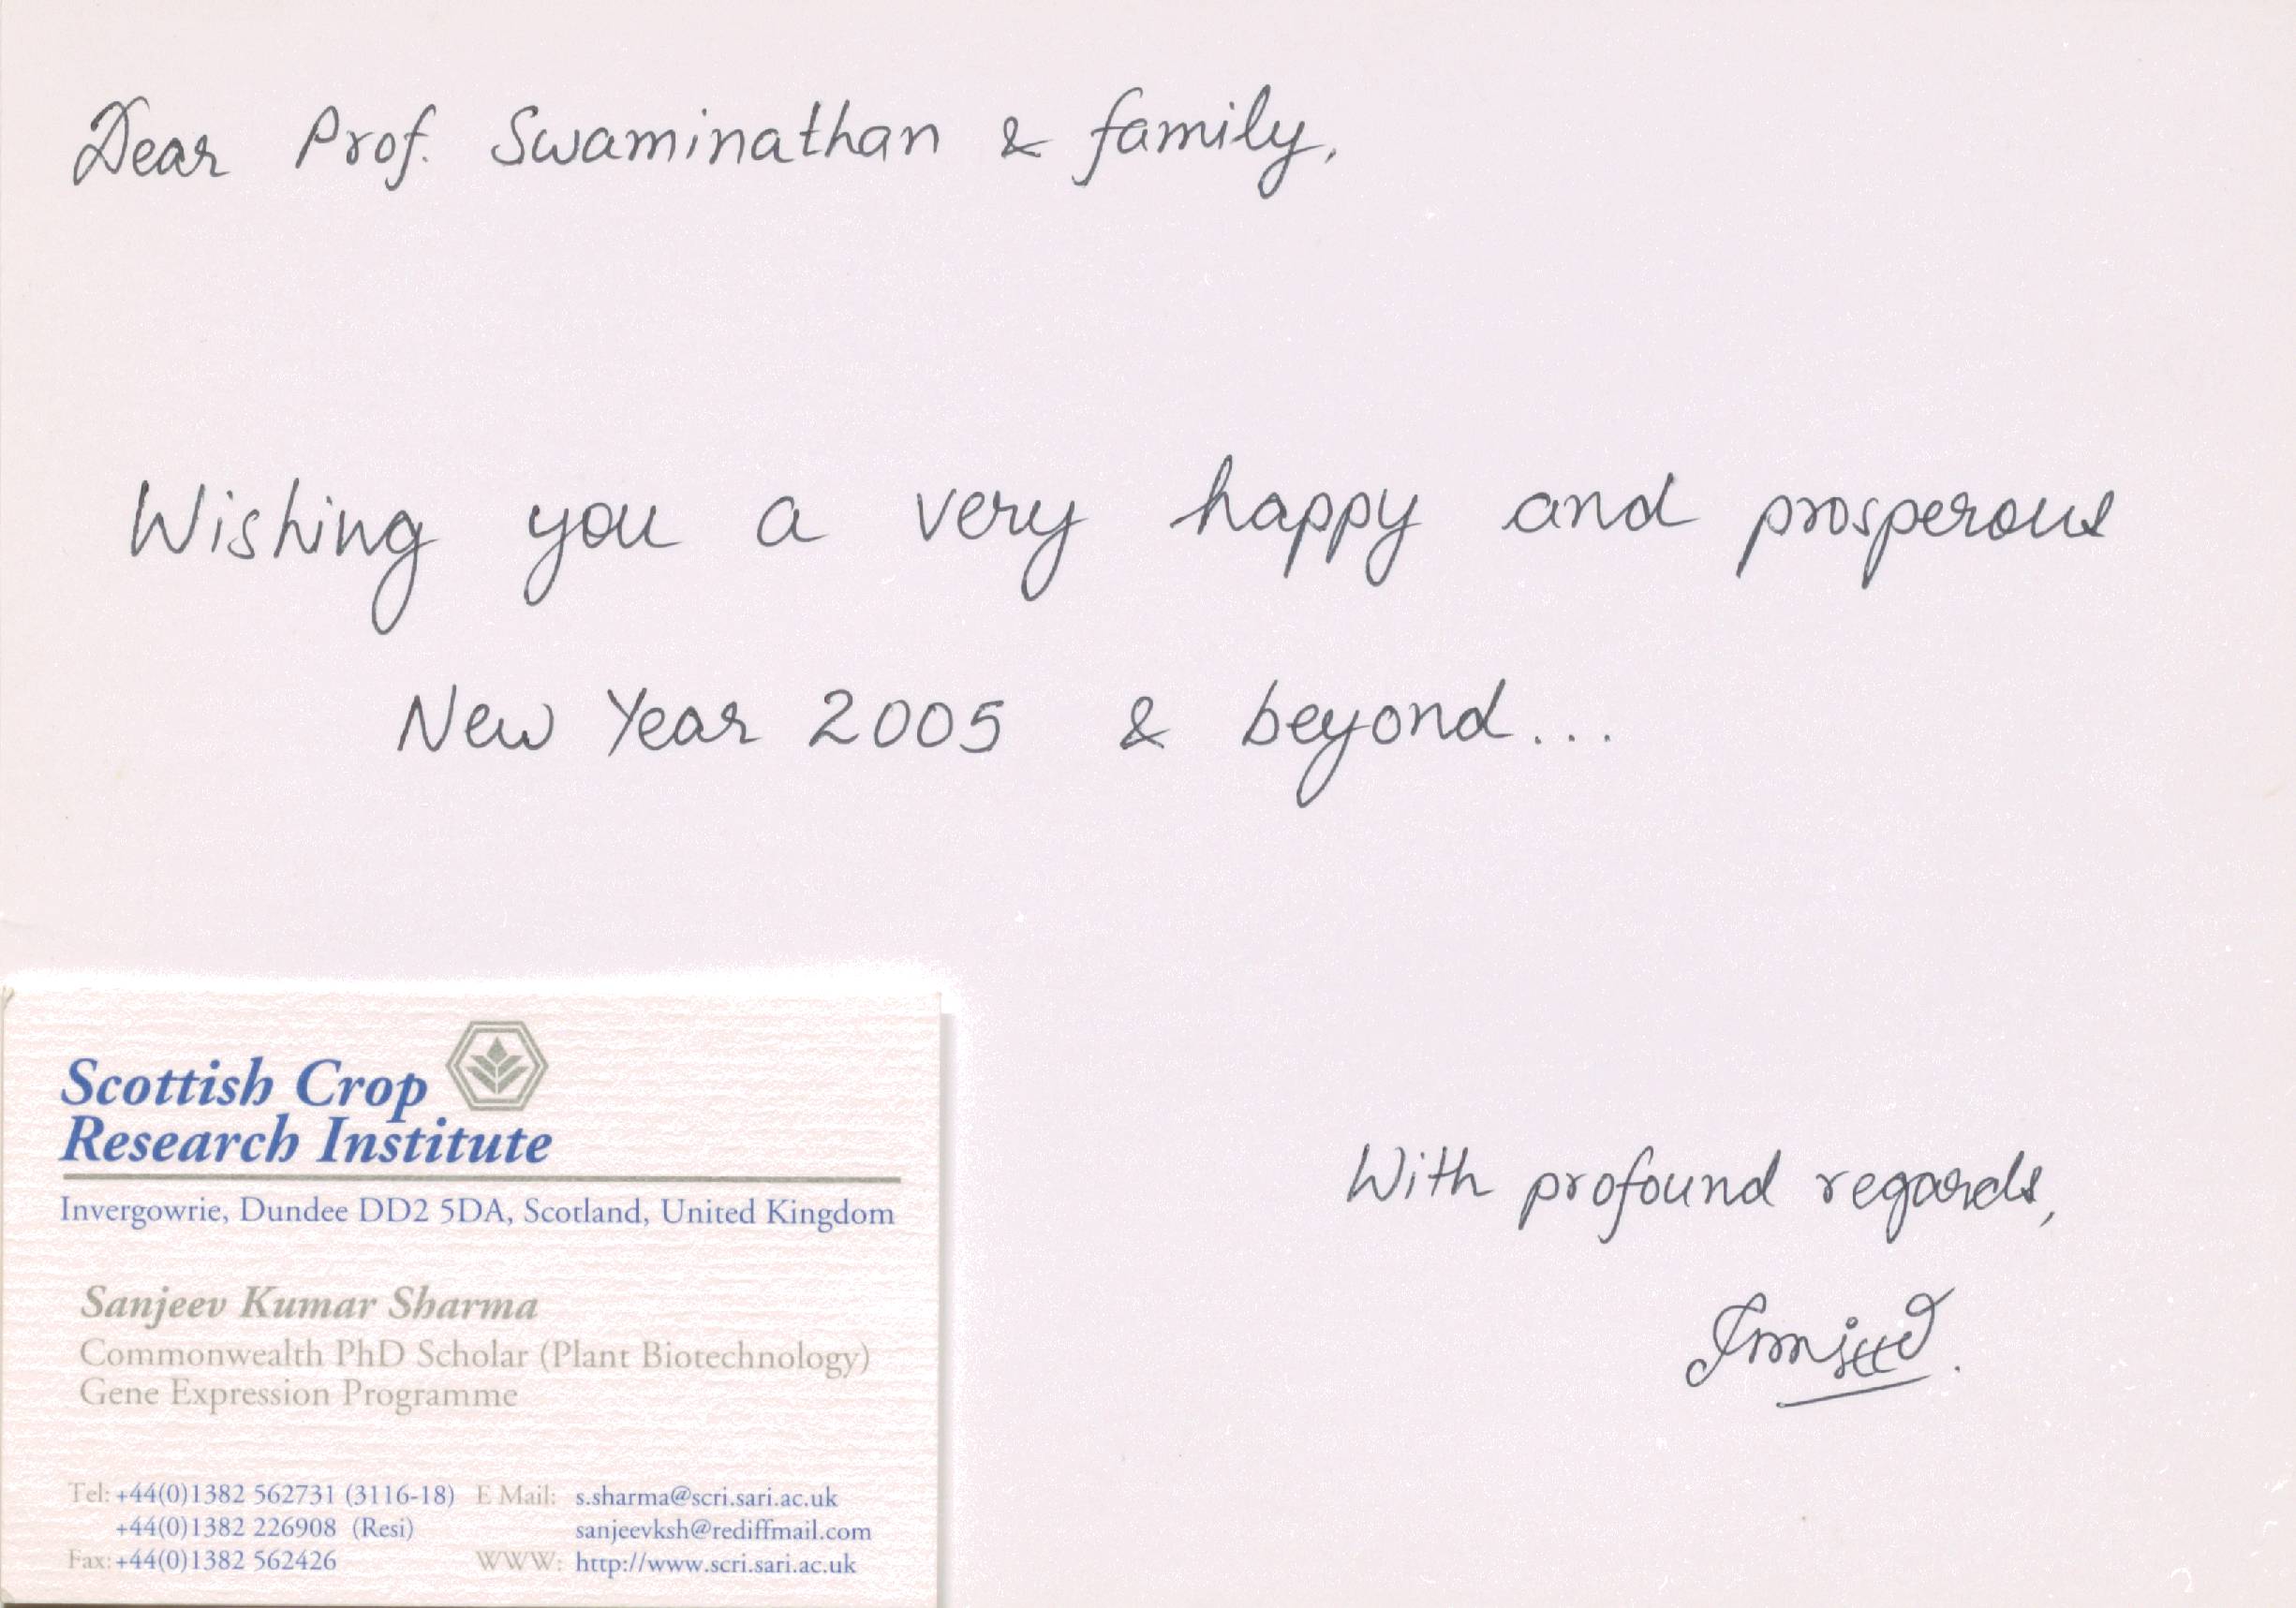 Dear Prof. Swaminathan & family,
Wishing you a very happy and prosperous
New Year 2005 & beyond...
With profound regards,
Scottish Crop
Research Institute
Invergowrie, Dundee DD2 5DA, Scotland, United Kingdom
Sanjeev Kumar Sharma
Commonwealth PhD Scholar (Plant Biotechnology)
Gene Expression Programme
Tel: +44(0)1382 562731 (3116-18) E Mail: s.sharma@scri.sari.ac.uk
+44(0)1382 226908 (Resi) sanjeevksh@rediffmail.com
Fax: +44(0)1382 562426 WWW: http://www.scri.sari.ac.uk